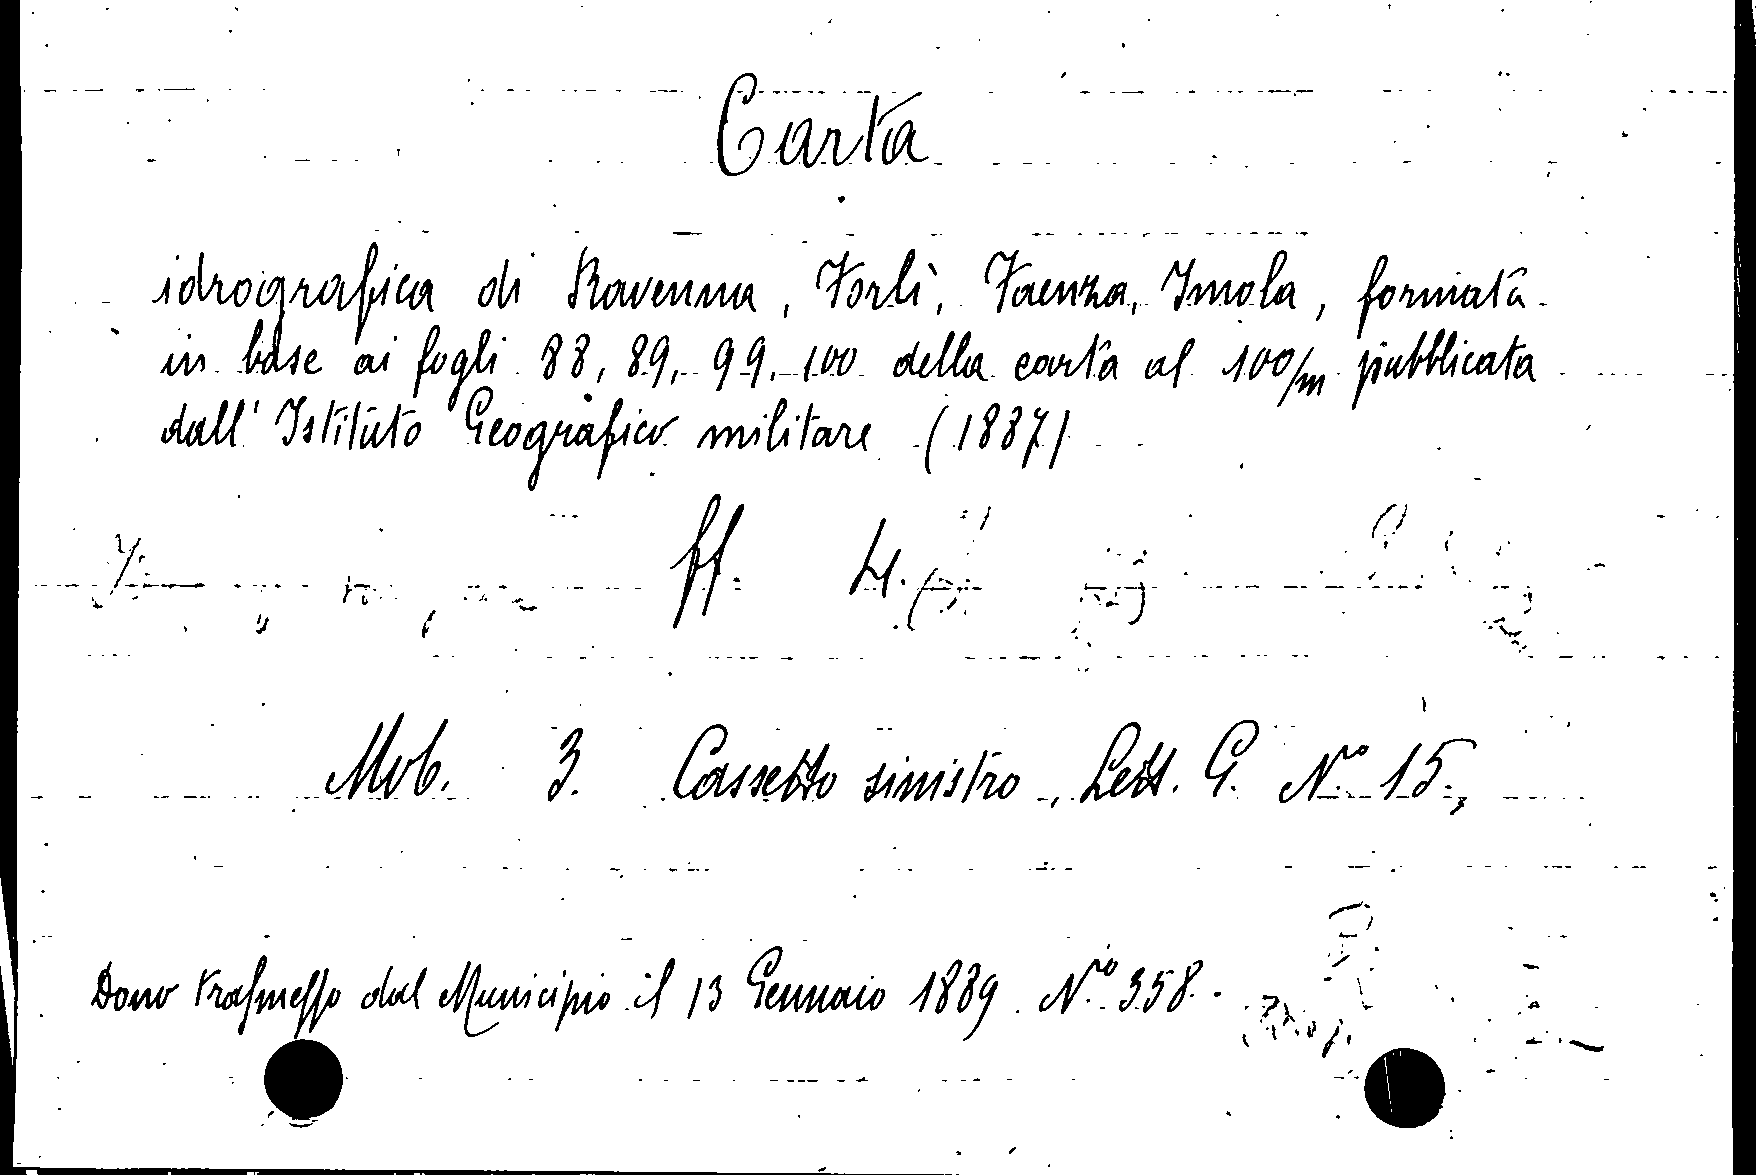 Carta
idrografica di Ravenna, Forlì, Faenza, Imola, formata
in base ai fogli 88, 89, 99, 100 della carta al 100/m pubblicata
dall' Istituto Geografico militare (1887)
ff. 4.
Mob. 3. Cassetto sinistro, Lett. G. No 15,
Dono trasmesso dal Municipio il 13 Gennaio 1889. No 358.